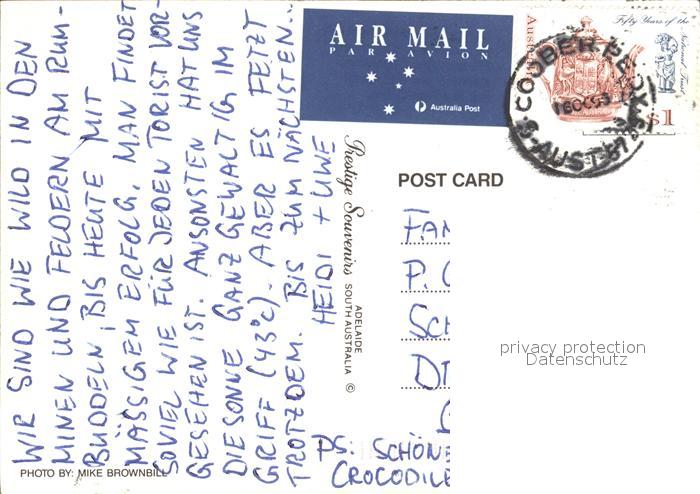 WIR SIND WIE WILD IN DEN
MINEN UND FELDERN AM RUM-
BUDDELN, BIS HEUTE MIT
MÄSSIGEM ERFOLG. MAN FINDET
SOVIEL WIE FÜR JEDEN TORIST VOR-
GESEHEN IST. ANSONSTEN HAT UNS
DIE SONNE GANZ GEWALTIG IM
GRIFF (43°C). ABER ES FETZT
TROTZDEM. BIS ZUM NÄCHSTEN...
HEIDI + UWE
PHOTO BY: MIKE BROWNBILL
AIR MAIL
PAR AVION
Australia Post
Prestige Souvenirs ADELAIDE SOUTH AUSTRALIA ©
Australia
Fifty Years of the National Trust
$1
COOBER PEDY
S. AUST
POST CARD
FAM
P.
SCH
privacy protection
Datenschutz
PS: SCHÖNE
CROCODILE